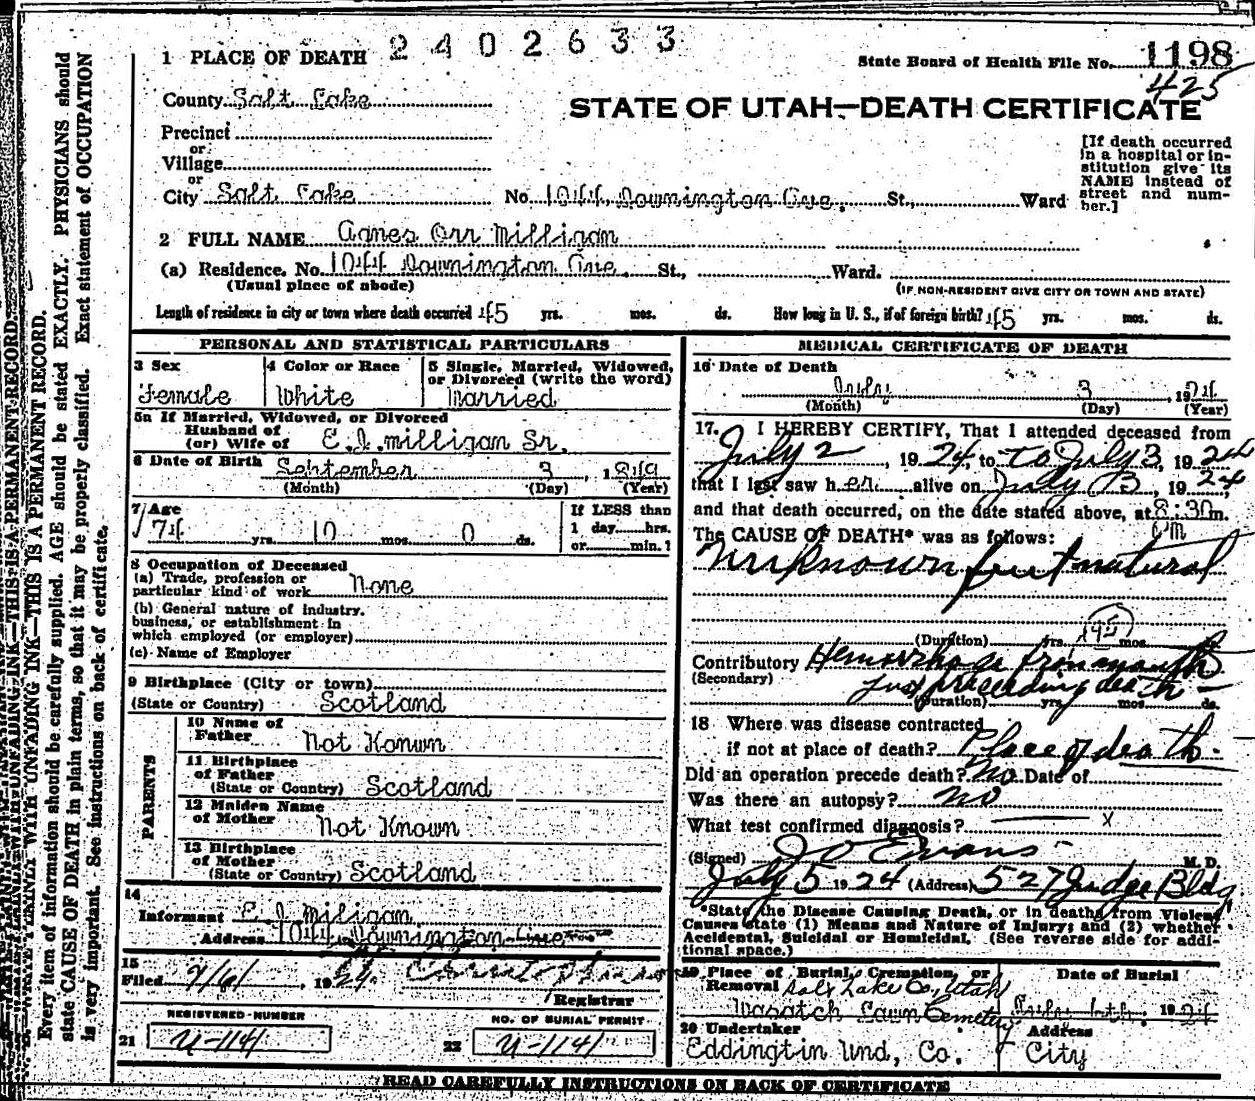 2402633
1 PLACE OF DEATH
State Board of Health File No. 1198
425
County Salt Lake
STATE OF UTAH—DEATH CERTIFICATE
Precinct
or
Village
or
City Salt Lake No. 1044 Downington Ave. St., Ward
[If death occurred in a hospital or institution give its NAME instead of street and number.]
2 FULL NAME Agnes Orr Milligan
(a) Residence. No. 1044 Downington Ave. St., Ward.
(Usual place of abode) (IF NON-RESIDENT GIVE CITY OR TOWN AND STATE)
Length of residence in city or town where death occurred 45 yrs. mos. ds. How long in U. S., if of foreign birth? 45 yrs. mos. ds.
PERSONAL AND STATISTICAL PARTICULARS
3 Sex
Female
4 Color or Race
White
5 Single, Married, Widowed, or Divorced (write the word)
Married
5a If Married, Widowed, or Divorced
Husband of
(or) Wife of E. J. Milligan Sr.
6 Date of Birth September 3, 1849
(Month) (Day) (Year)
7 Age
74 yrs. 10 mos. 0 ds.
If LESS than
1 day hrs.
or min. ?
8 Occupation of Deceased
(a) Trade, profession or
particular kind of work None
(b) General nature of industry.
business, or establishment in
which employed (or employer)
(c) Name of Employer
9 Birthplace (City or town)
(State or Country) Scotland
PARENTS
10 Name of
Father Not Konwn
11 Birthplace
of Father
(State or Country) Scotland
12 Maiden Name
of Mother Not Known
13 Birthplace
of Mother
(State or Country) Scotland
14
Informant E J Miligan
Address 1044 Downington Ave
15
Filed 7/6/, 1924
Registrar
REGISTERED NUMBER
21 U-1141
NO. OF BURIAL PERMIT
22 U-1141
MEDICAL CERTIFICATE OF DEATH
16 Date of Death
July 3, 1924
(Month) (Day) (Year)
17. I HEREBY CERTIFY, That I attended deceased from
July 2, 1924, to to July 3, 1924
that I last saw her alive on July 3, 1924,
and that death occurred, on the date stated above, at 8:30 m.
PM
The CAUSE OF DEATH* was as follows:
Unknown but natural
(Duration) yrs. mos.
Contributory Hemorrhage from mouth
(Secondary) just preceding death
(Duration) yrs. mos. ds.
18 Where was disease contracted
if not at place of death? Place of death.
Did an operation precede death? No Date of
Was there an autopsy? no
What test confirmed diagnosis? x
(Signed) J O Evans M. D.
July 5 1924 (Address) 527 Judge Bldg
*State the Disease Causing Death, or in deaths from Violent
Causes state (1) Means and Nature of Injury; and (2) whether
Accidental, Suicidal or Homicidal. (See reverse side for additional space.)
19 Place of Burial, Cremation, or
Removal Salt Lake Co., Utah
Wasatch Lawn Cemetery
Date of Burial
July 6th. 1924
20 Undertaker
Eddingtin Und, Co.
Address
City
READ CAREFULLY INSTRUCTIONS ON BACK OF CERTIFICATE
WRITE PLAINLY WITH UNFADING INK—THIS IS A PERMANENT RECORD.
Every item of information should be carefully supplied. AGE should be stated EXACTLY. PHYSICIANS should
state CAUSE OF DEATH in plain terms, so that it may be properly classified. Exact statement of OCCUPATION
is very important. See instructions on back of certificate.